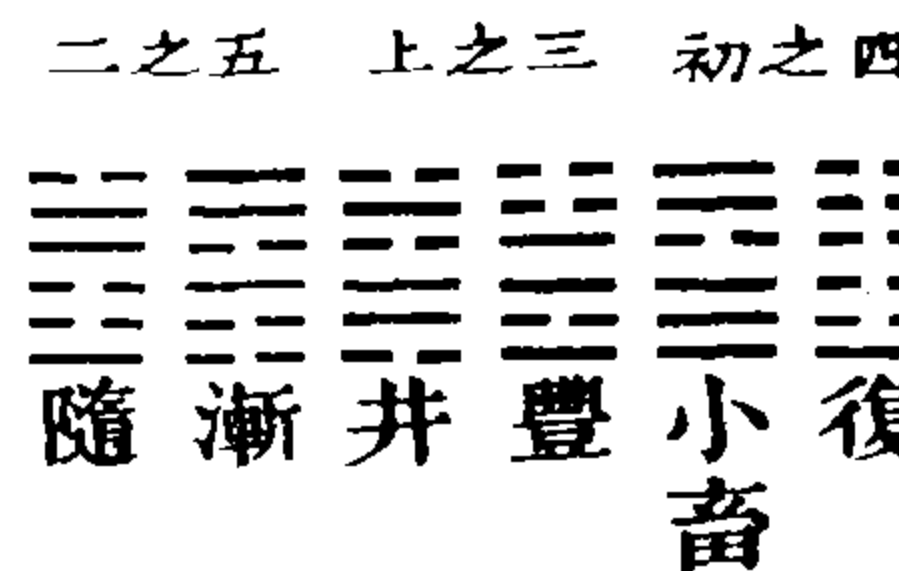 二之五 上之三 初之四
隨 漸 井 豐 小畜 復